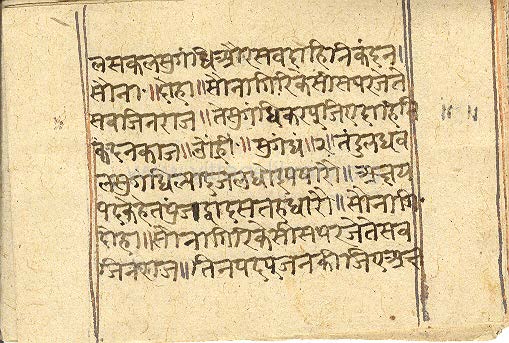 लसकलसुगंधिऔरसवदाहिनिकंदन।
सोना॥दोहा॥सोनागिरिकेसीसपरजेते
सवजिनराज॥तेसुगंधिकरपूजिएदाहनि
कंदनकाज॥ओंह्रीं॥सुगंधं॥२॥तंदुलधव
लसुगंधिल्यादजलधोरपषारो॥अच्छय
पदकेहेतपुंजद्वादसतहधारो॥सोनागि
दोहा॥सोनागिरिकेसीसपरजेतेसव
जिनराज॥तिनपदपूजनकीजिएअच